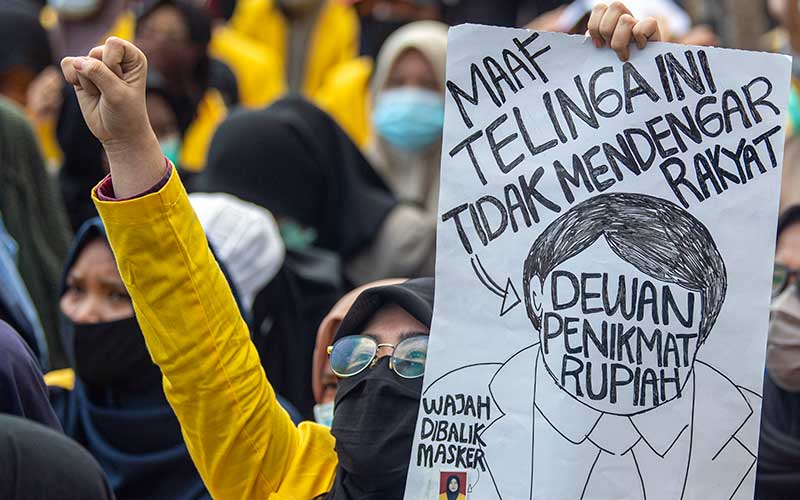 MAAF
TELINGA INI
TIDAK MENDENGAR
RAKYAT
DEWAN
PENIKMAT
RUPIAH
WAJAH
DIBALIK
MASKER